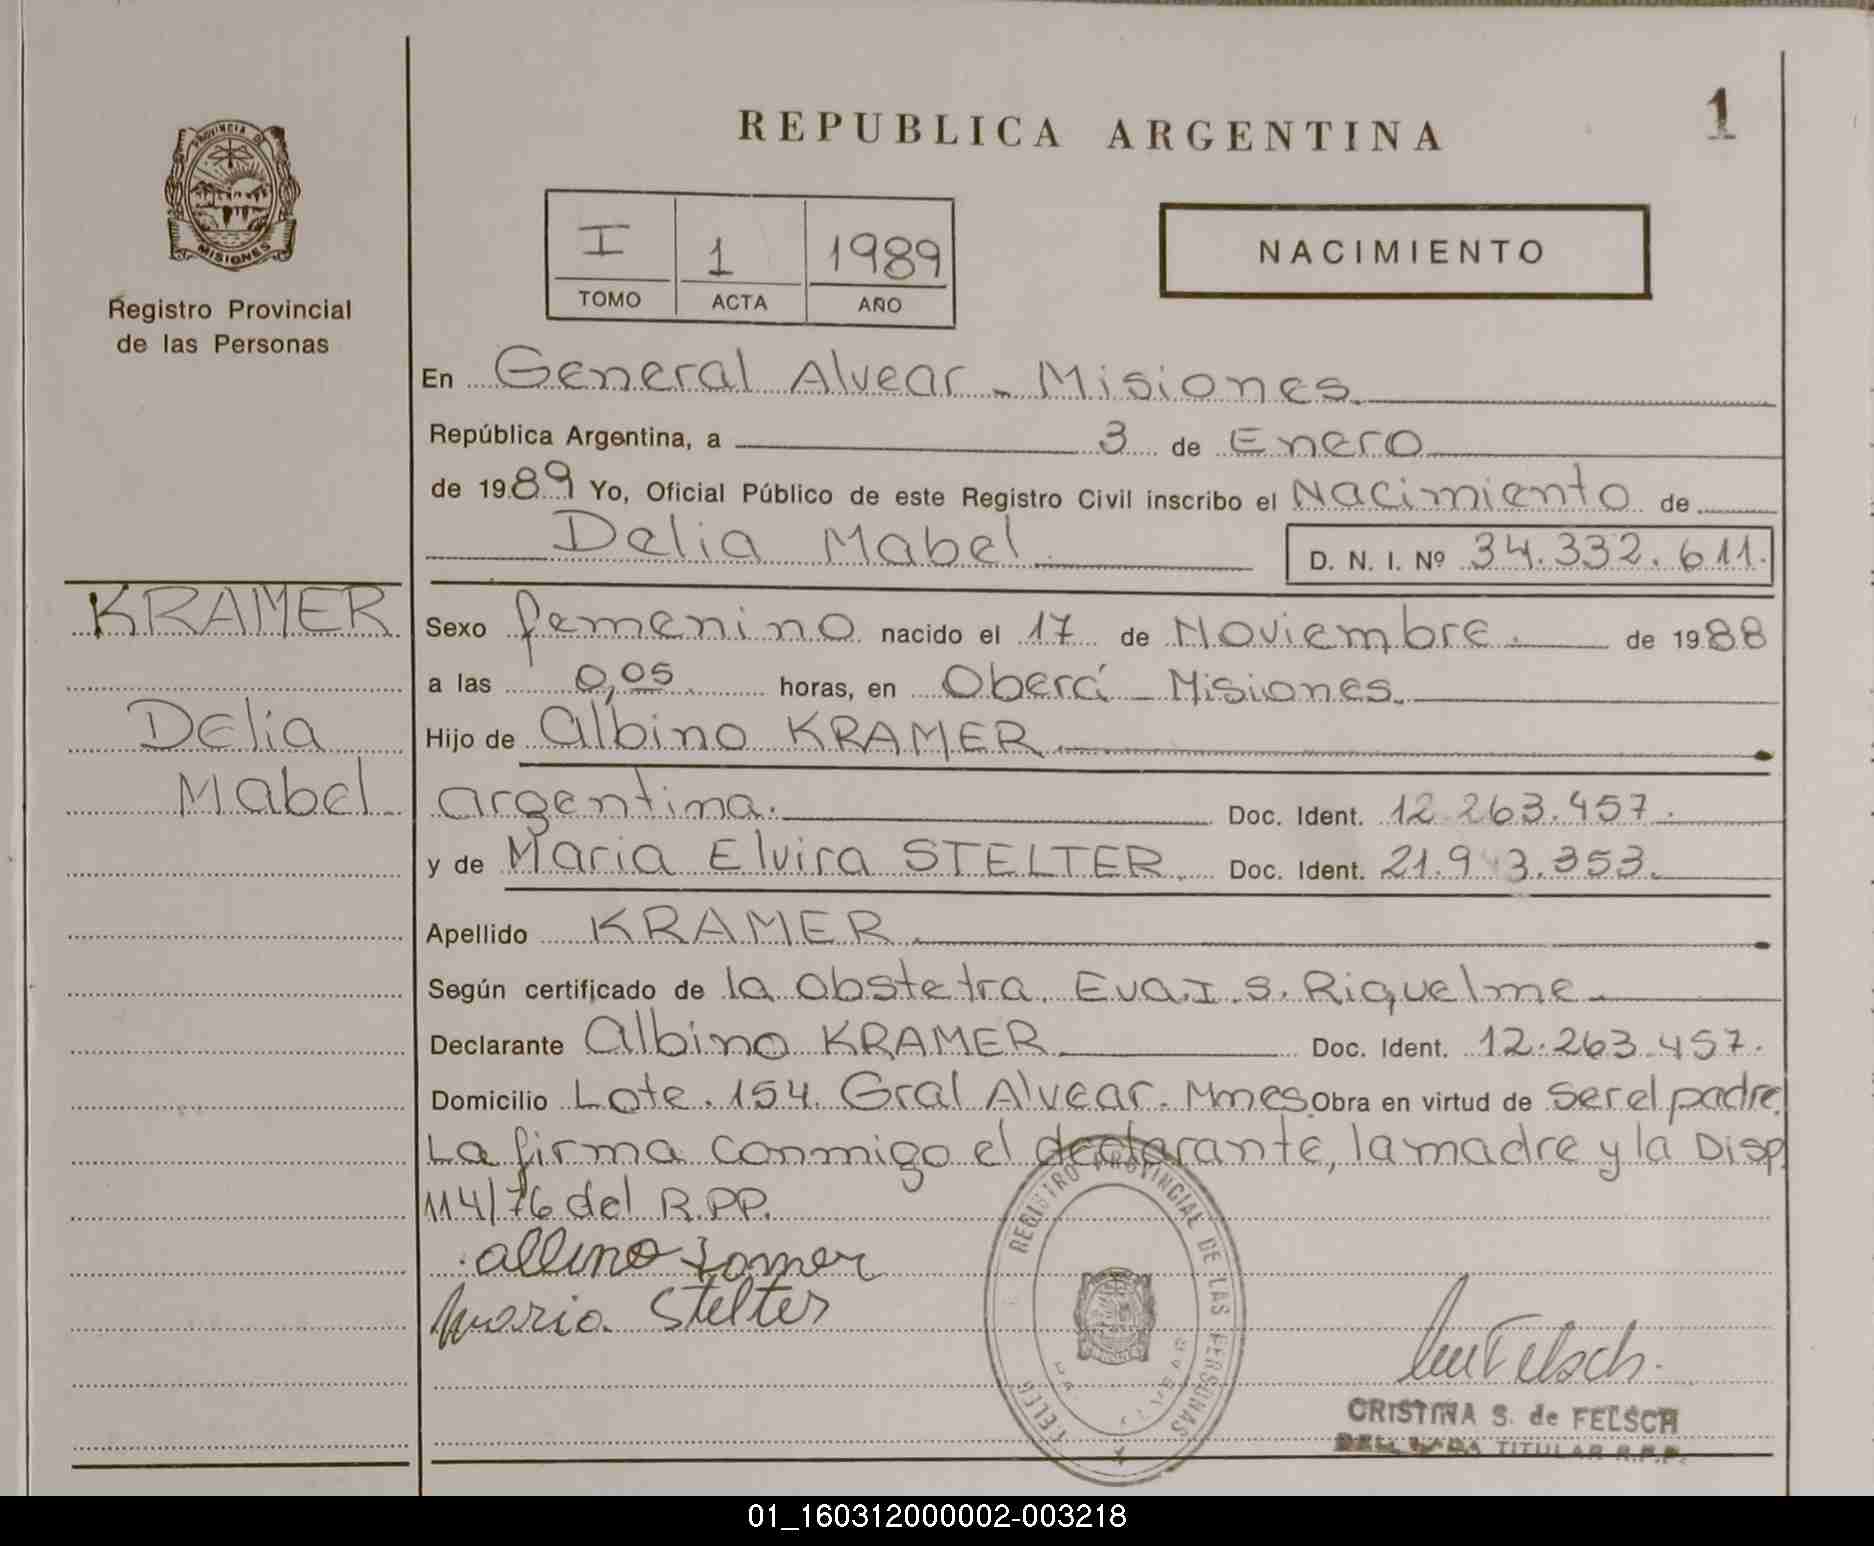 REPUBLICA ARGENTINA
1
PROVINCIA DE
MISIONES
Registro Provincial
de las Personas
I 1 1989
TOMO ACTA AÑO
NACIMIENTO
En General Alvear - Misiones.
República Argentina, a 3 de Enero
de 1989 Yo, Oficial Público de este Registro Civil inscribo el Nacimiento de
Delia Mabel D. N. I. Nº 34.332.611.
KRAMER
Delia
Mabel
Sexo femenino nacido el 17 de Noviembre. de 1988
a las 0,05 horas, en Oberá - Misiones.
Hijo de Albino KRAMER
argentina. Doc. Ident. 12.263.457.
y de Maria Elvira STELTER. Doc. Ident. 21.9 3.353.
Apellido KRAMER.
Según certificado de la Obstetra. Eva.I.S. Riquelme.
Declarante Albino KRAMER Doc. Ident. 12.263.457.
Domicilio Lote. 154. Gral Alvear. Mnes. Obra en virtud de ser el padre.
La firma conmigo el declarante, la madre y la Disp.
114/76 del R.PP.
Albino
Maria Stelter
REGISTRO PROVINCIAL DE LAS PERSONAS
Felsch.
CRISTINA S. de FELSCH
TITULAR R.P.P.
01_160312000002-003218